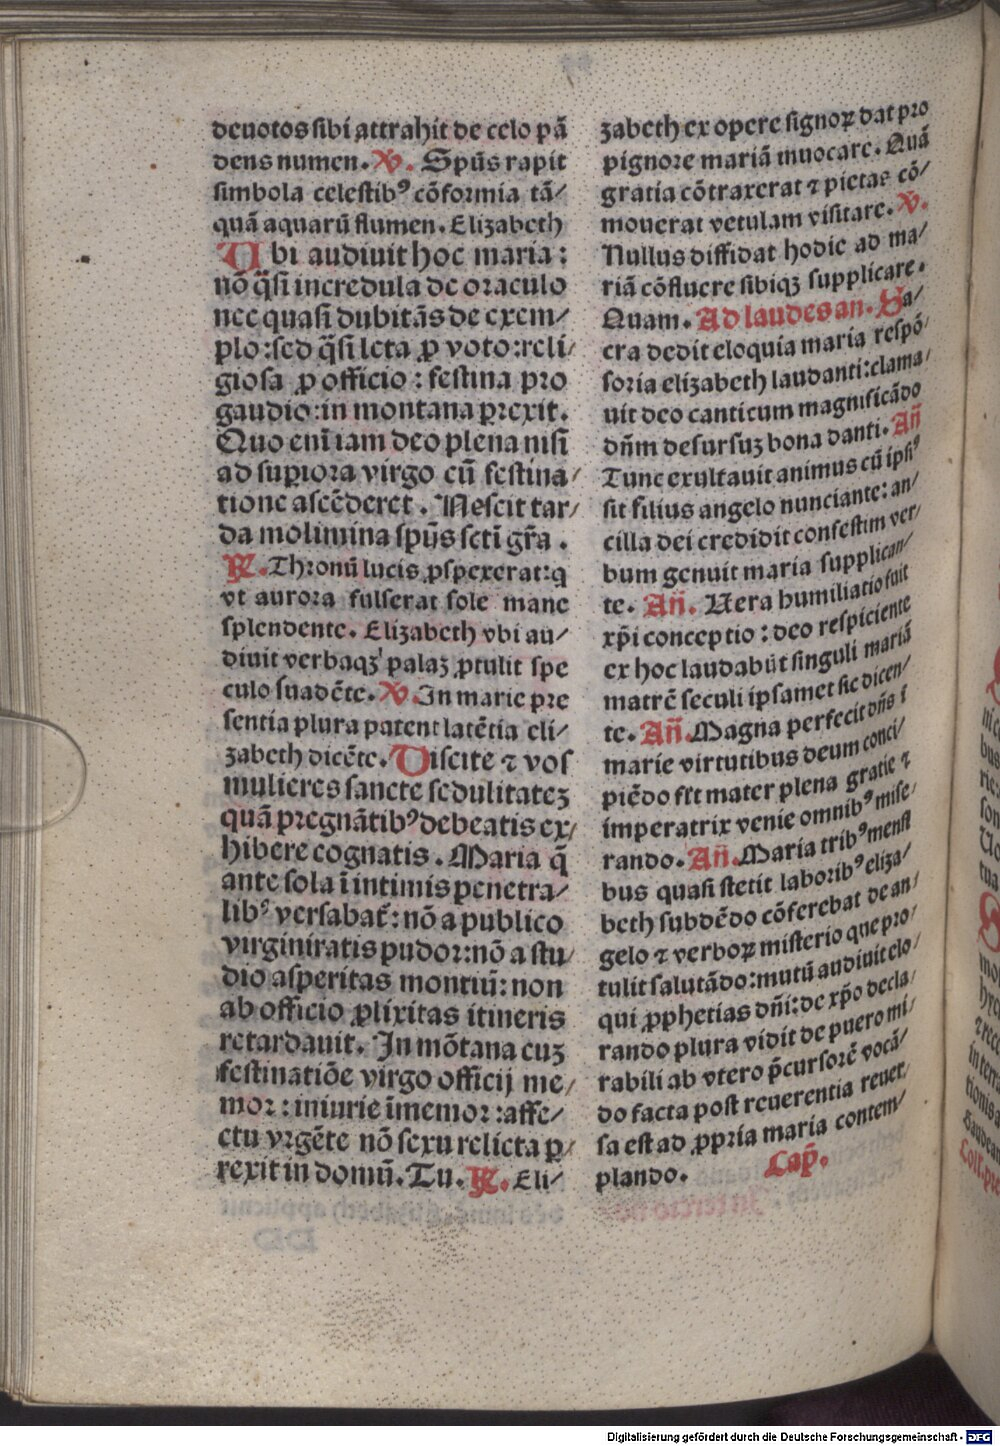 deuotos sibi attrahit de celo pā
dens numen. V̷. Spūs rapit
simbola celestibꝰ cōformia tā/
quā aquarū flumen. Elizabeth
Ubi audiuit hoc maria:
nō q̄si incredula de oraculo
nec quasi dubitās de exem/
plo: sed q̄si leta ꝓ voto: reli/
giosa ꝓ officio: festina pro
gaudio: in montana ꝑrexit.
Quo eni iam deo plena nisi
ad suꝑiora virgo cū festina/
tione ascēderet. Nescit tar/
da molimina spūs scti gr̄a.
R̷. Thronū lucis ꝓspexerat: q
vt aurora fulserat sole mane
splendente. Elizabeth vbi au/
diuit verbaqꝫ palaꝫ ꝓtulit spe
culo suadēte. V̷. In marie pre
sentia plura patent latētia eli/
zabeth dicēte. Discite ⁊ vos
mulieres sancte sedulitateꝫ
quā pregnātibꝰ debeatis ex/
hibere cognatis. Maria q̄
ante sola ī intimis penetra/
libꝰ versabat̄: nō a publico
virginitatis pudor: nō a stu/
dio asperitas montiū: non
ab officio ꝓlixitas itineris
retardauit. In mōtana cuꝫ
festinatiōe virgo officij me/
mor: iniurie īmemor: affe/
ctu vrgēte nō sexu relicta ꝑ/
rexit in domū. Tu. R̷. Eli/
zabeth ex opere signoꝝ dat pro
pignore mariā inuocare. Quā
gratia cōtraxerat ⁊ pietas cō/
mouerat vetulam visitare. V̷.
Nullus diffidat hodie ad ma/
riā cōfluere sibiqꝫ supplicare.
Quam. Ad laudes an. Sa/
cra dedit eloquia maria respō/
soria elizabeth laudanti: clama/
uit deo canticum magnificādo
dn̄m desursuꝫ bona danti. An̄
Tunc exultauit animus cū ipsiꝰ
sit filius angelo nunciante: an/
cilla dei credidit confestim ver/
bum genuit maria supplican/
te. An̄. Uera humiliatio fuit
xp̄i conceptio: deo respiciente
ex hoc laudabūt singuli mariā
matrē seculi ipsamet sic dicen/
te. An̄. Magna perfecit dn̄s ī
marie virtutibus deum conci/
piēdo fit mater plena gratie ⁊
imperatrix venie omnibꝰ mise/
rando. An̄. Maria tribꝰ mensi
bus quasi stetit laboribꝰ eliza/
beth subdēdo cōferebat de an/
gelo ⁊ verboꝝ misterio que pro/
tulit salutādo: mutū audiuit elo/
qui ꝓphetias dn̄i: de xp̄o decla/
rando plura vidit de puero mi/
rabili ab vtero p̄cursorē vocā/
do facta post reuerentia reuer/
sa est ad ꝓpria maria contem/
plando. Cap̄.
Digitalisierung gefördert durch die Deutsche Forschungsgemeinschaft - DFG